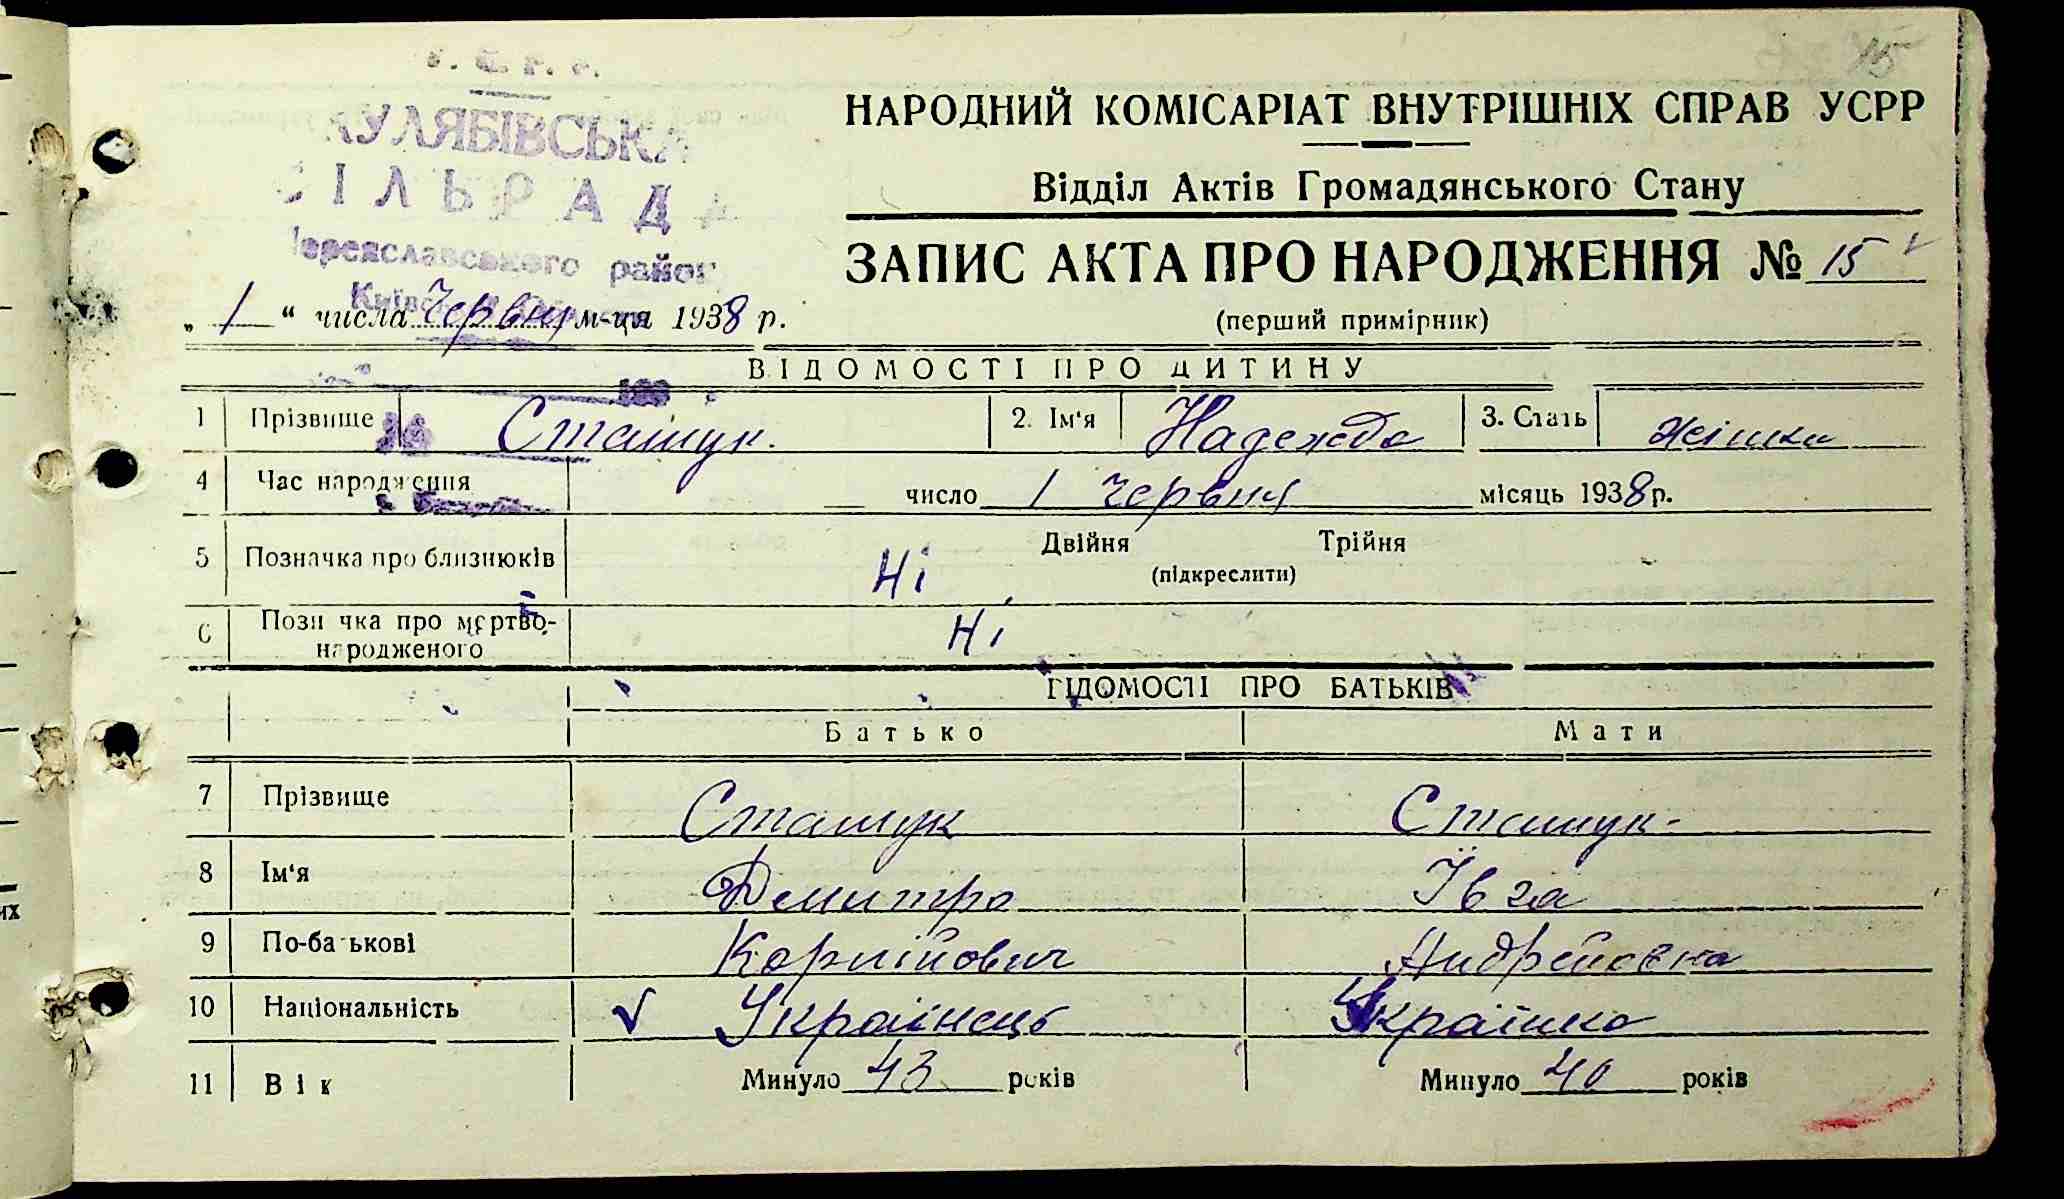 15
У. С. Р. Р.
КУЛЯБІВСЬКА
СІЛЬРАДА
Переяславського району
НАРОДНИЙ КОМІСАРІАТ ВНУТРІШНІХ СПРАВ УСРР
Відділ Актів Громадянського Стану
ЗАПИС АКТА ПРО НАРОДЖЕННЯ № 15
„ 1 “ числа червня м-ця 1938 р.
(перший примірник)
ВІДОМОСТІ ПРО ДИТИНУ
1 Прізвище Сташук. 2. Ім'я Надежда 3. Стать жінка
4 Час народження число 1 червня місяць 1938 р.
5 Позначка про близнюків Ні Двійня Трійня
(підкреслити)
6 Позначка про мертво-
народженого Ні
ВІДОМОСТІ ПРО БАТЬКІВ
Батько Мати
7 Прізвище Сташук Сташук
8 Ім'я Демитро Ївга
9 По-батькові Корнійович Андрейовна
10 Національність Українець Українка
11 Вік Минуло 43 років Минуло 40 років
их